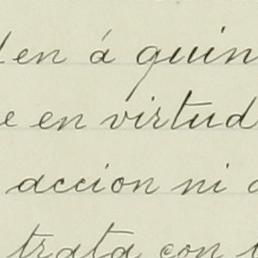 den á quin
e en virtud
accion ni
trata con